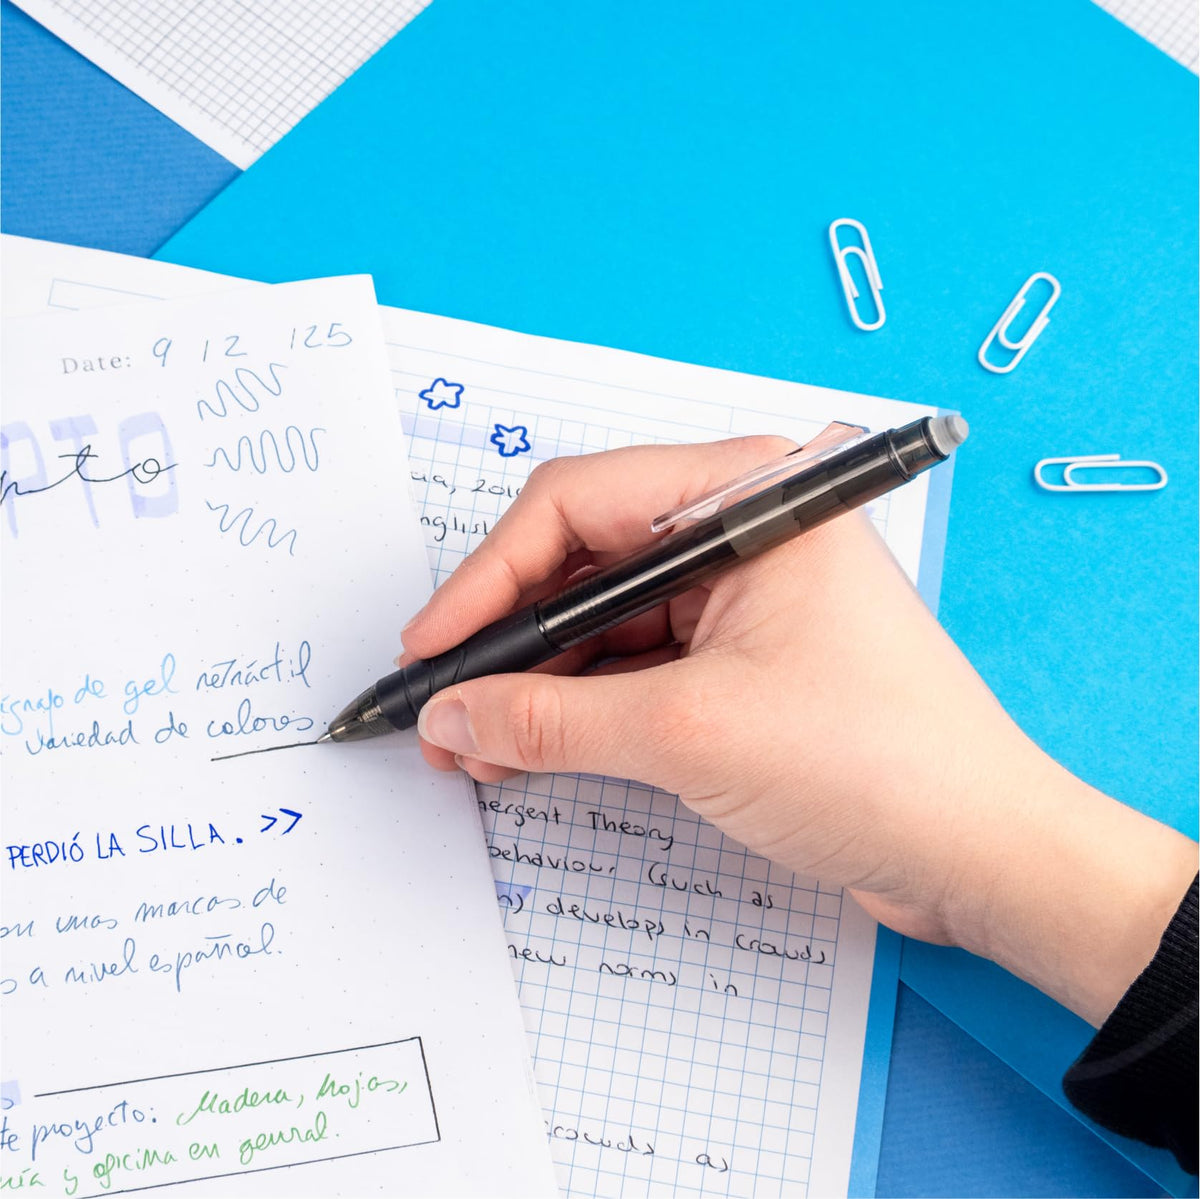 Date: 9 12 125
pto
de gel retráctil
variedad de colores.
PERDIÓ LA SILLA. >>
unas marcas de
a nivel español.
proyecto: Madera, hojas,
y oficina en general.
2010
Theory
behaviour (such as
develops in crowds
new norms in
crowds as